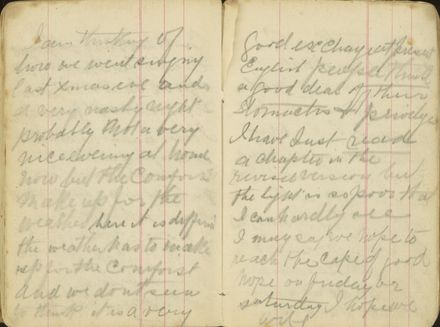 I am thinking of
how we went singing
last xmas eve and
a very nasty night
probably not a very
nice evening at home
now but the comforts
make up for the
weather here it is differin
the weather has to make
up for the comforst
and we dont seem
to think it is a very
good exchange just present
English people think
a good deal of their
stomachs
I have Just read
a chapter in the
revised version but
the light is so poor that
I can hardly see
I may say we hope to
reach the cape of good
hope on friday or
saturday I hope we
will